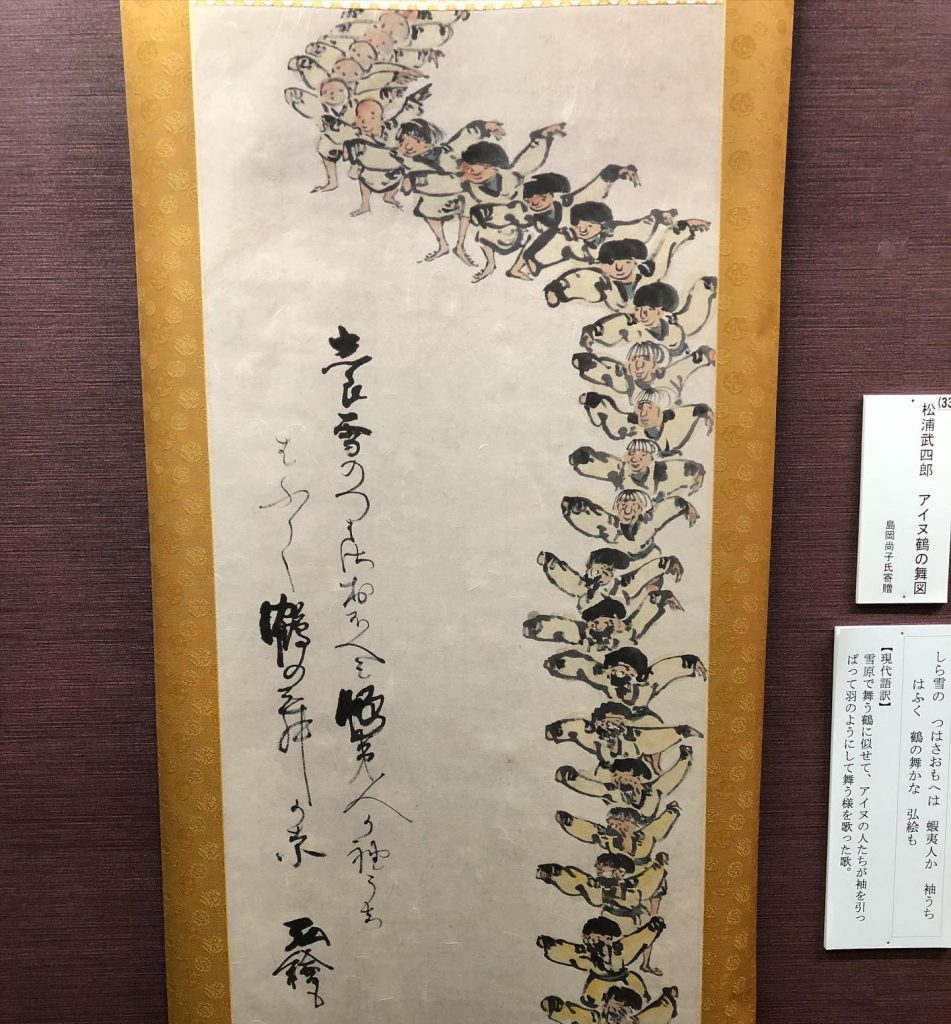 しら雪のつはさおもへは蝦夷人か袖うち
はふく鶴の舞かな
弘繪も
(33
松浦武四郎　アイヌ鶴の舞図
島岡尚子氏寄贈
しら雪の　つはさおもへは　蝦夷人か　袖うち
はふく　鶴の舞かな　弘絵も
【現代語訳】
雪原で舞う鶴に似せて、アイヌの人たちが袖を引っ
ぱって羽のようにして舞う様を歌った歌。